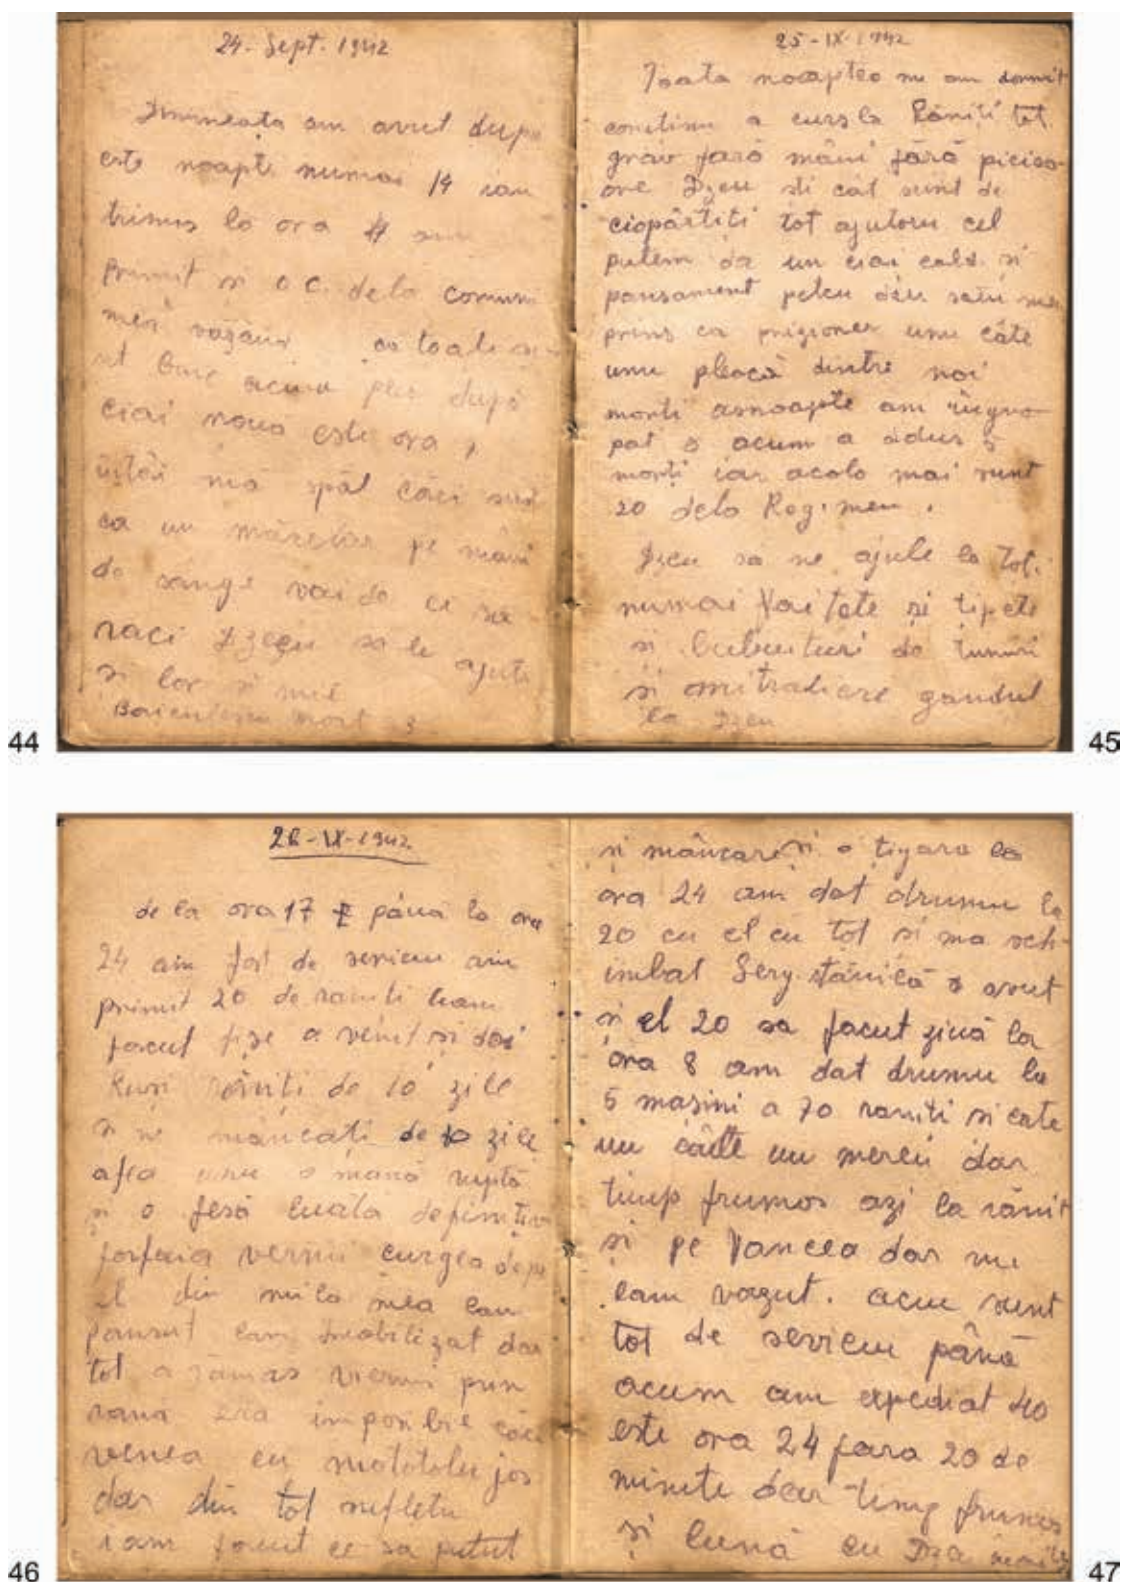 24. Sept. 1942
Dimineața am avut dupa
este noapti numai 14 iau
trimis la ora 4 am
primit si o c. dela comuni
mea
bine acuma plec dupà
ciai nouà este ora 1
ùntâi mà spàl càci sunt
ca un màcelar pe màini
de sânge vai de ei sa
raci Dzeu sa le ajute
si lor si mie
mort 3
44
25-IX-1942
Toata noaptea nu am dormit
continu a curs la Ràniți tot
grav farà mâini fàrà picioa-
one Dzeu sti cât sunt de
ciopârtiti tot ajutoru cel
putem da un ciai cald si
pansament
prins ca prizioner unu câte
unu pleacà dintre noi
morti asnoapte am ingro-
pat 8 acum a adus 5
morți iar acolo mai sunt
20 dela Regimen.
Dzeu sa ne ajute la Toti
numai Vaitete si tipete
si bubuituri de tunuri
si mitraliere gandul
la Dzeu
45
26-IX-1942
de la ora 17 pànà la ora
24 am fost de serviciu am
primit 20 de raniti leam
facut fise a venit si doi
Rusi ràniți de 10 zile
si ne màncați de 10 zile
aflea unu o manà ruptà
si o fesà luata definitiv
forfaia vermii curgea depe
el din mila mea lau
pansat lam imobilizat dar
tot a ràmas viermi prin
ranà era imposibil càci
venea cu mototolu jos
dar din tot sufletu
iam facut ce sa putut
46
si mâncare si o țigara la
ora 24 am dat drumu la
20 cu el cu tot si ma sch-
imbat Serg. stànicà a avut
si el 20 sa facut ziuà la
ora 8 am dat drumu la
5 masini a 70 raniti si cate
un câte un mereu dar
timp frumos azi la rànit
si pe Vancea dar nu
lam vazut. acuu sunt
tot de serviciu pânà
acum am expediat 40
este ora 24 fara 20 de
minute dar timp frumos
si lunà cu Dza
47